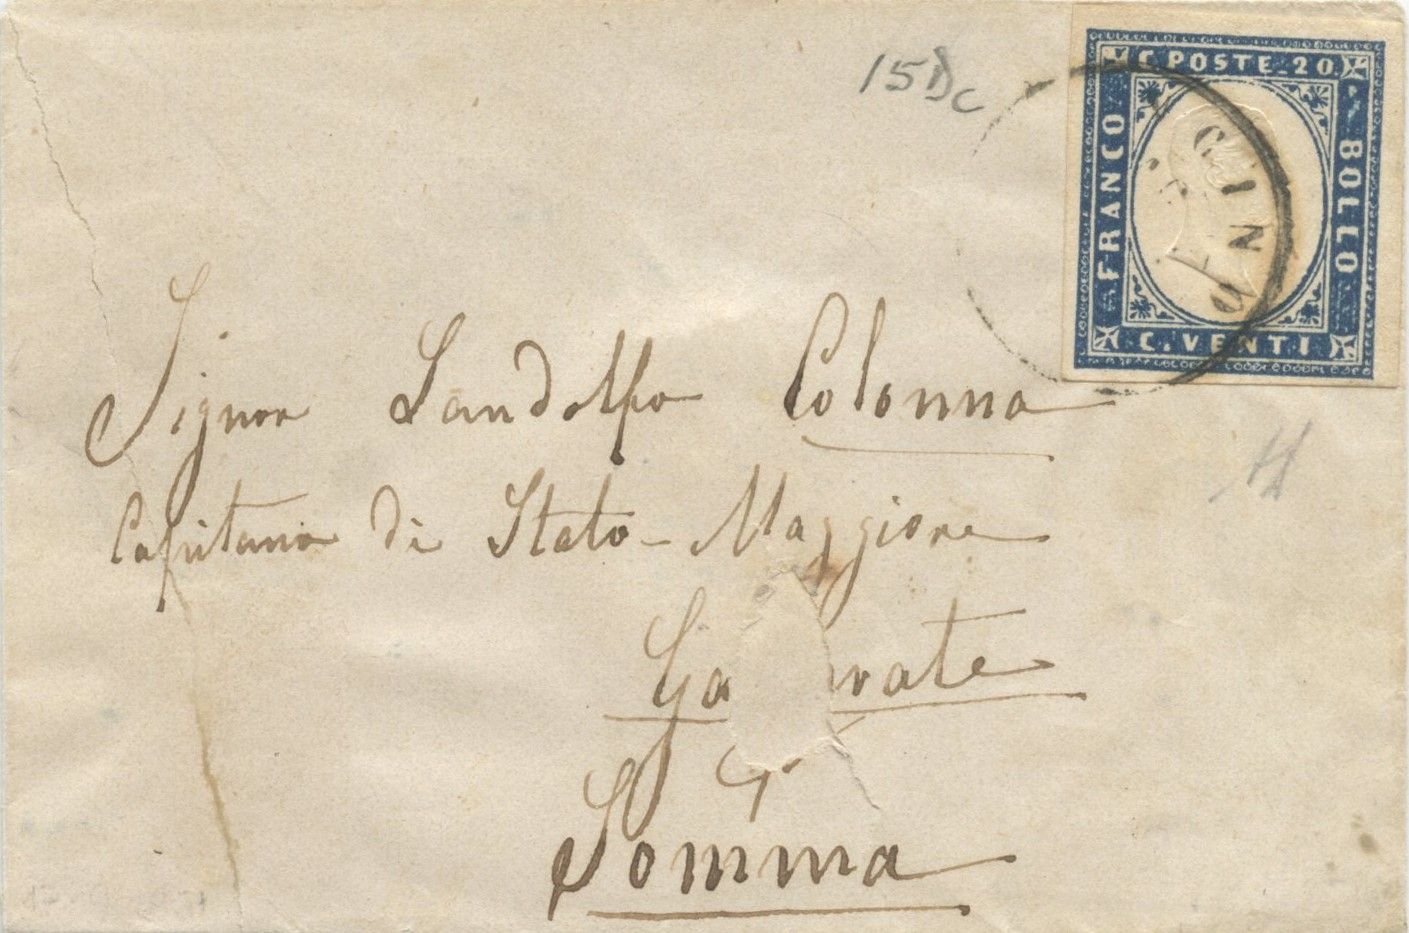 15Dc
C. POSTE. 20.
FRANCO
BOLLO
C. VENTI
Signor Landolfo Colonna
Capitano di Stato-Maggiore
Ga rate
Somma